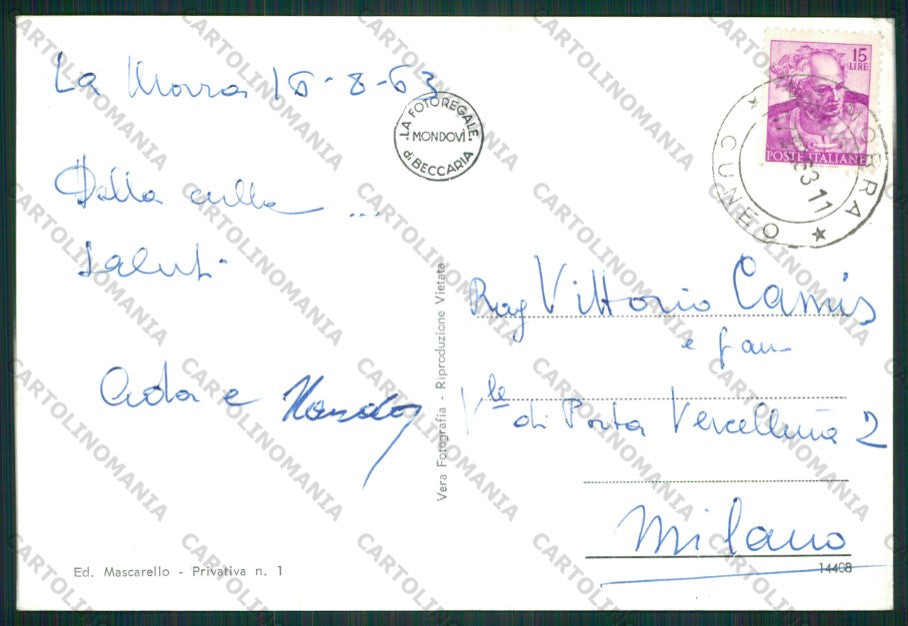 La Morra 16-8-63
LA FOTOREGALE
MONDOVÌ
di BECCARIA
15
LIRE
POSTE ITALIANE
MORRA
CUNEO
63 11
Dalla culla ...
saluti
Ada e
Vera Fotografia - Riproduzione Vietata
Rag Vittorio Camis
e fam
V.le di Porta Vercellina 2
Milano
Ed. Mascarello - Privativa n. 1
14408
CARTOLINOMANIA